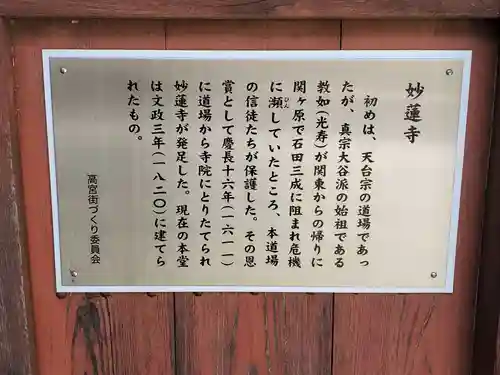 妙蓮寺
初めは、天台宗の道場であっ
たが、真宗大谷派の始祖である
教如(光寿)が関東からの帰りに
関ヶ原で石田三成に阻まれ危機
に瀕していたところ、本道場
ひん
の信徒たちが保護した。その恩
賞として慶長十六年(一六一一)
に道場から寺院にとりたてられ
妙蓮寺が発足した。現在の本堂
は文政三年(一八二〇)に建てら
れたもの。
高宮街づくり委員会